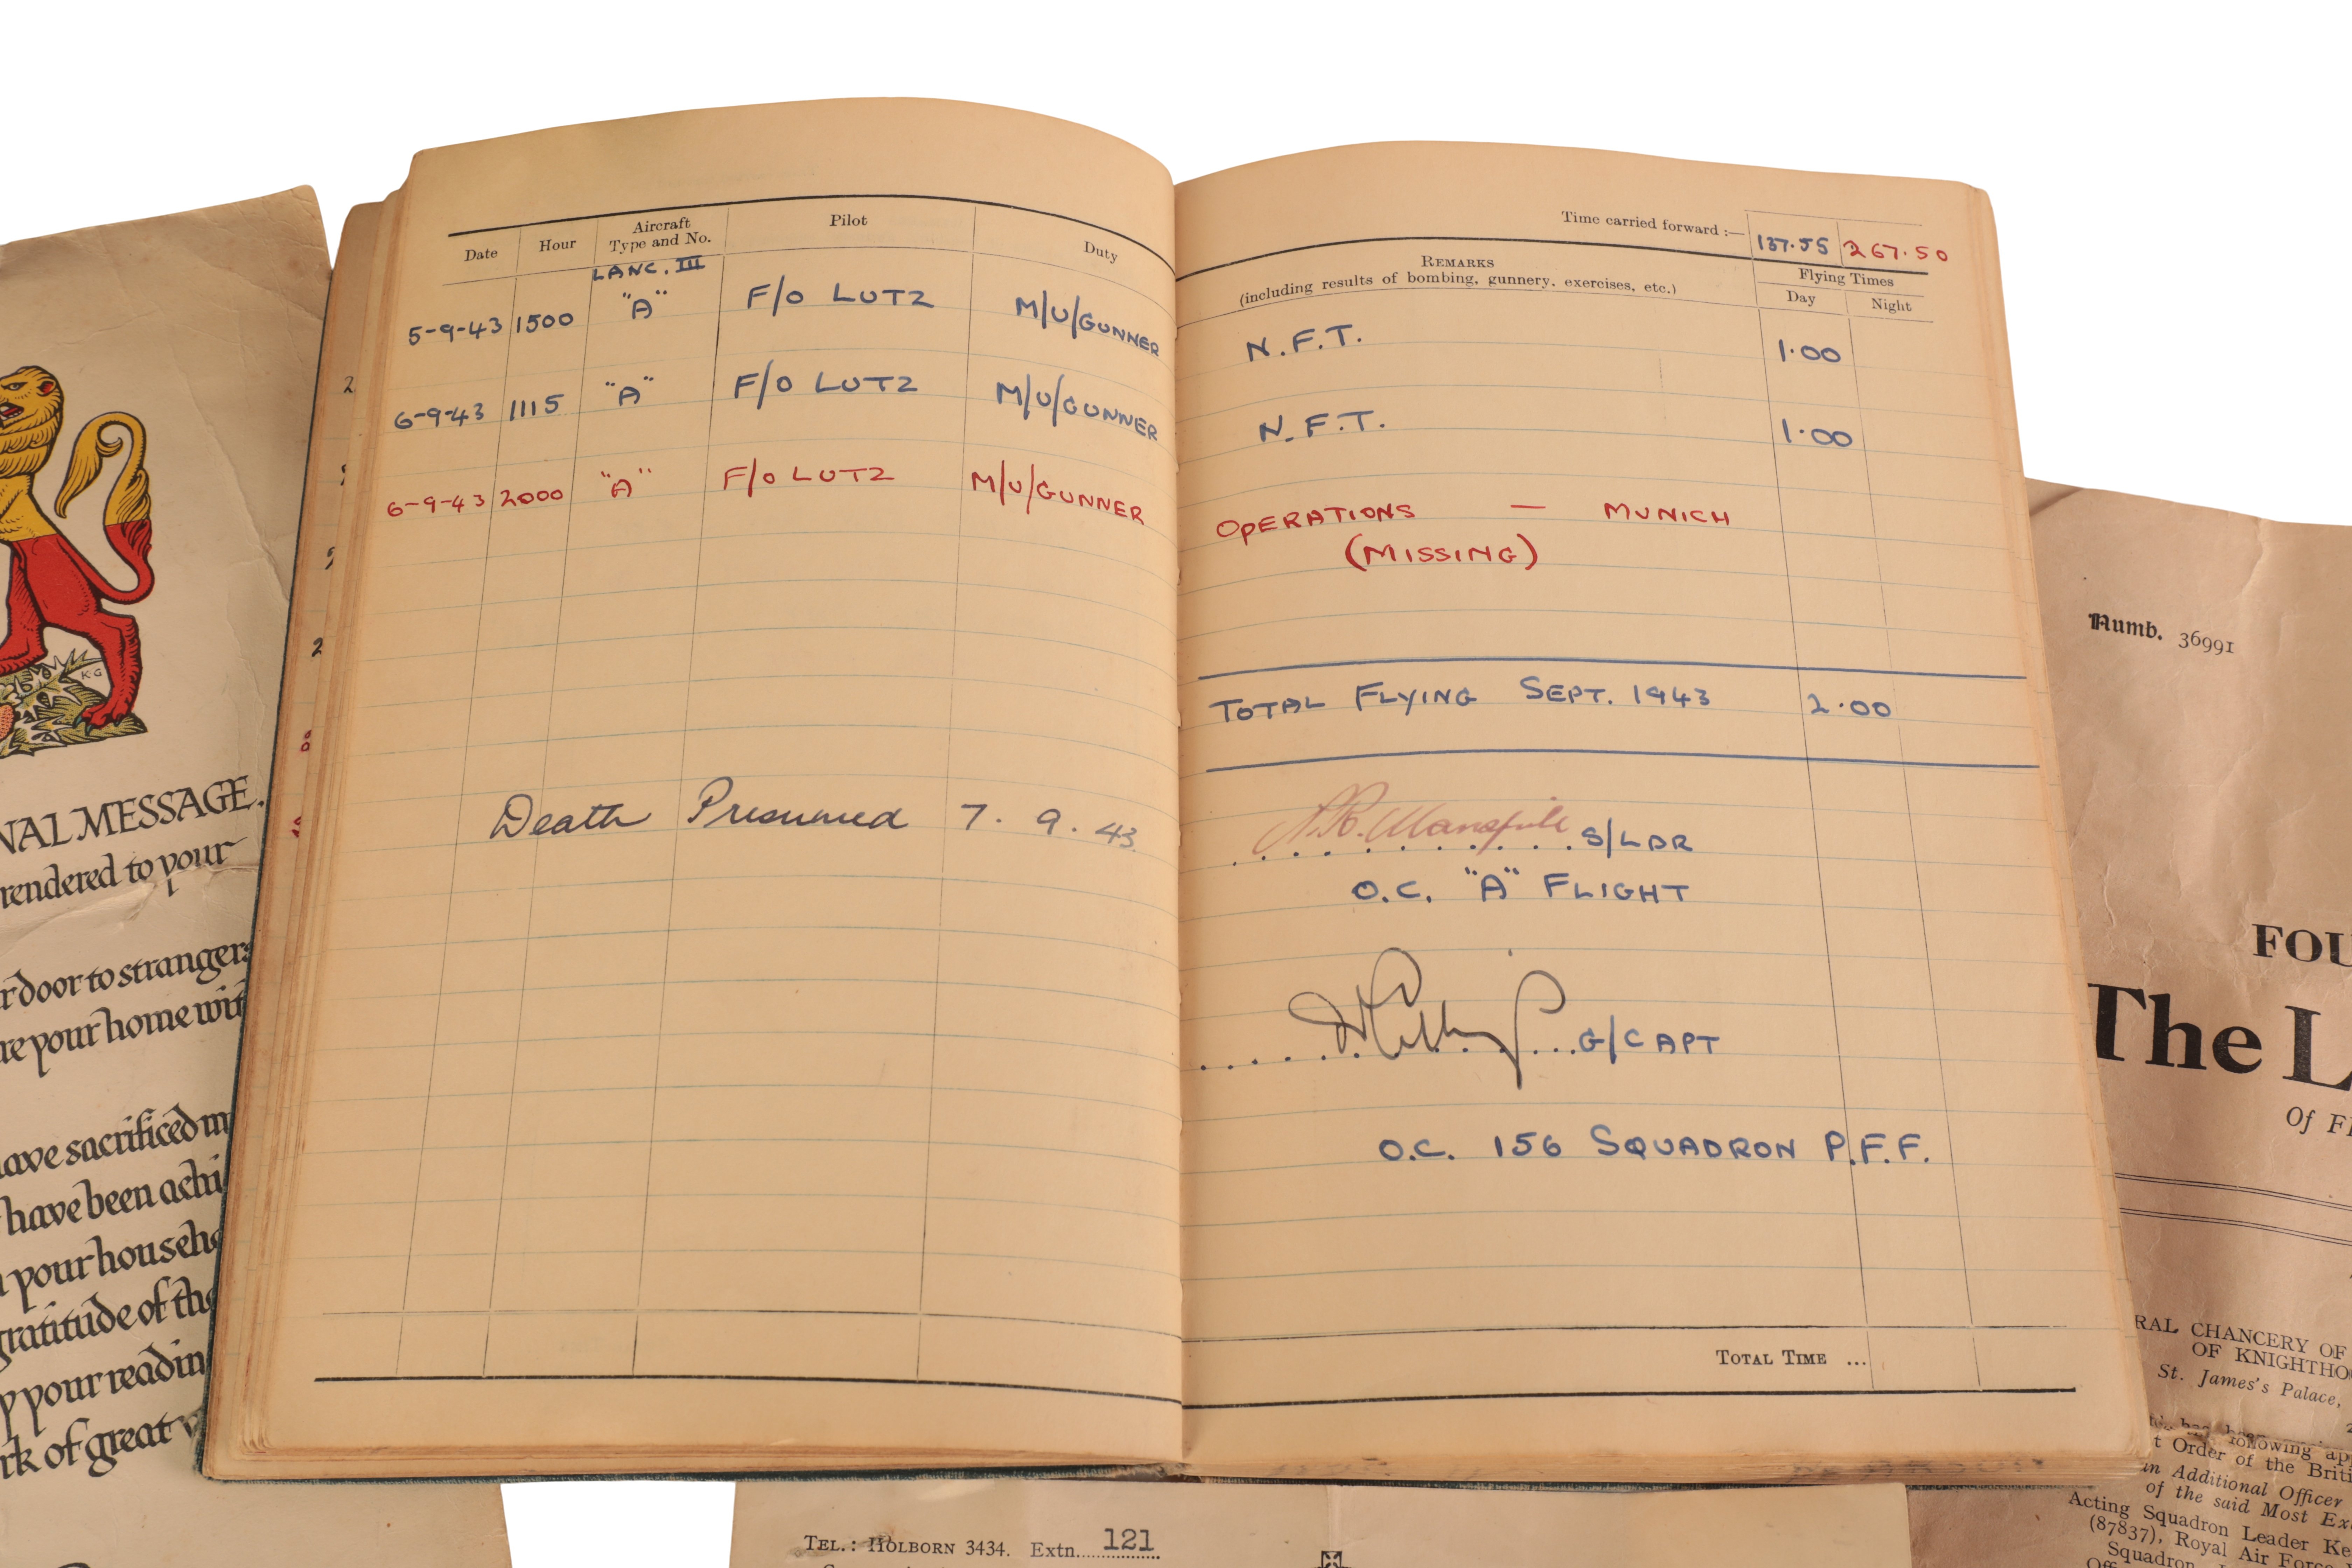 Date Hour Aircraft Type and No. Pilot Duty
LANC. III
5-9-43 1500 "A" F/O LUTZ M/U/GUNNER
6-9-43 1115 "A" F/O LUTZ M/U/GUNNER
6-9-43 2000 "A" F/O LUTZ M/U/GUNNER
Death Presumed 7. 9. 43.
Time carried forward :— 137.55 267.50
REMARKS
(including results of bombing, gunnery, exercises, etc.)
Flying Times
Day Night
N.F.T. 1.00
N.F.T. 1.00
OPERATIONS — MUNICH
(MISSING)
TOTAL FLYING SEPT. 1943 2.00
S/LDR
O.C. "A" FLIGHT
G/CAPT
O.C. 156 SQUADRON P.F.F.
TOTAL TIME ...
KG
NAL MESSAGE.
rendered to your
r door to strangers
re your home wit
ave sacrificed m
have been achi
n your househo
gratitude of the
y your readin
rk of great v
TEL.: HOLBORN 3434. Extn. 121
Numb. 36991
FOU
The L
Of F
RAL CHANCERY OF
OF KNIGHTHO
St. James's Palace,
following app
t Order of the Briti
an Additional Officer
of the said Most Ex
Acting Squadron Leader Ke
(87837), Royal Air Force
Squadron